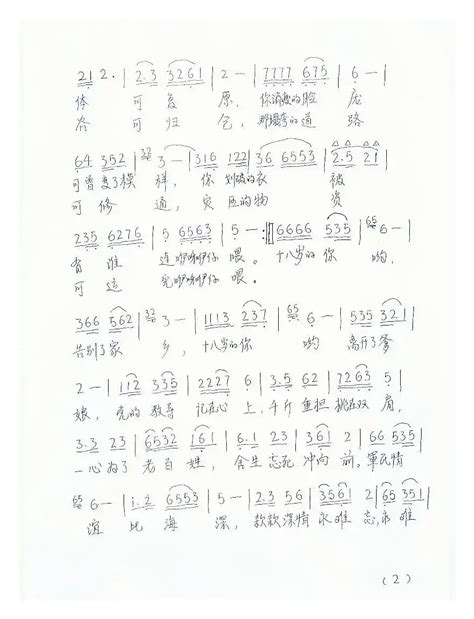 21 2· | 2.3 3261 | 2 — | 7777 675 | 6 — |
体 可复 原, 你消瘦的脸 庞
谷 可归 仓, 那塌弯的道 路
64 352 | 3 — | 316 122 | 36 6553 | 2.5 21 |
可曾变了模 样, 你 划破的衣 被
可修 通, 灾区的物 资
235 6276 | 5 6563 | 5 — :‖ 6666 535 | 65 6 — |
有谁 道咿呀咿仔 喂。 十八岁的你 哟,
可运 完咿呀咿仔 喂。
366 562 | 3 — | 1113 237 | 65 6 — | 535 321 |
告别了家 乡, 十八岁的你 哟 离开了爹
2 — | 112 335 | 2227 6 | 3.5 62 | 7263 5 |
娘, 党的教导 记在心 上, 千斤重担 挑在双 肩,
3.3 23 | 6532 161 | 6.1 23 | 361 2 | 66 535 |
一心为了 老百姓, 舍生忘死 冲向 前, 军民情
65 6 — | i.2 6553 | 5 — | 2.3 56 | 3561 2 | 65 351 |
谊 比海 深, 款款深情 永难 忘, 永难
(2)